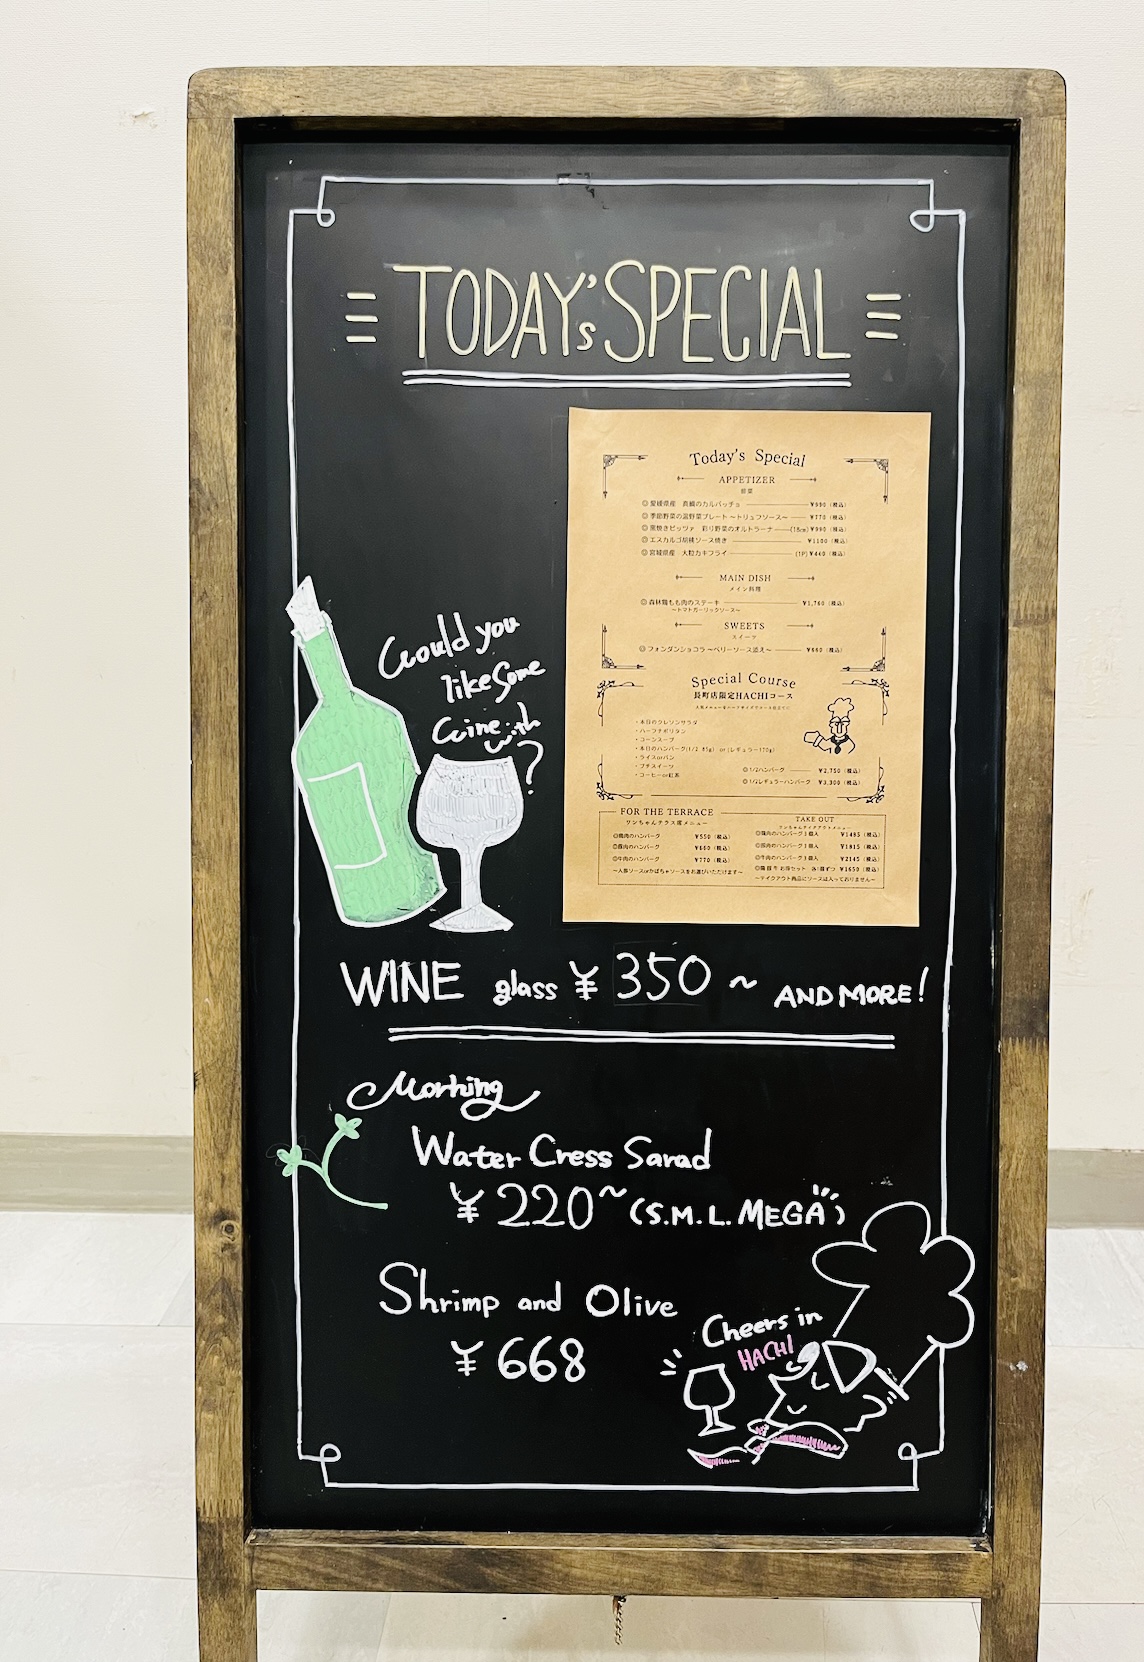 TODAY'S SPECIAL
Today's Special
APPETIZER
前菜
◎愛媛県産 真鯛のカルパッチョ ¥990（税込）
◎季節野菜の温野菜プレート～トリュフソース～ ¥770（税込）
◎窯焼きピッツァ 彩り野菜のオルトラーナ (18cm) ¥990（税込）
◎エスカルゴ胡桃ソース焼き ¥1100（税込）
◎宮城県産 大粒カキフライ (1P) ¥440（税込）
MAIN DISH
メイン料理
◎森林鶏もも肉のステーキ ¥1,760（税込）
～トマトガーリックソース～
SWEETS
スイーツ
◎フォンダンショコラ～ベリーソース添え～ ¥660（税込）
Special Course
長町店限定HACHIコース
・本日のクレソンサラダ
・ハーフナポリタン
・コーンスープ
・本日のハンバーグ(1/2 85g) or (レギュラー170g)
・ライスorパン
・プチスイーツ
・コーヒーor紅茶
◎1/2ハンバーグ ¥2,750（税込）
◎1/2レギュラーハンバーグ ¥3,300（税込）
FOR THE TERRACE
ワンちゃんテラス席メニュー
◎鶏肉のハンバーグ ¥550（税込）
◎豚肉のハンバーグ ¥660（税込）
◎牛肉のハンバーグ ¥770（税込）
～人参ソースorかぼちゃソースをお選びいただけます～
TAKE OUT
ワンちゃんテイクアウトメニュー
◎鶏肉のハンバーグ3個入 ¥1485（税込）
◎豚肉のハンバーグ3個入 ¥1815（税込）
◎牛肉のハンバーグ3個入 ¥2145（税込）
◎鶏豚牛お得セット 各1個ずつ ¥1650（税込）
～テイクアウト商品にソースは入っておりません～
Would you
like Some
wine with
?
WINE glass ¥350～ AND MORE!
Morning
Water Cress Sarad
¥220～ (S.M.L.MEGA)
Shrimp and Olive
¥668
Cheers in
HACHI